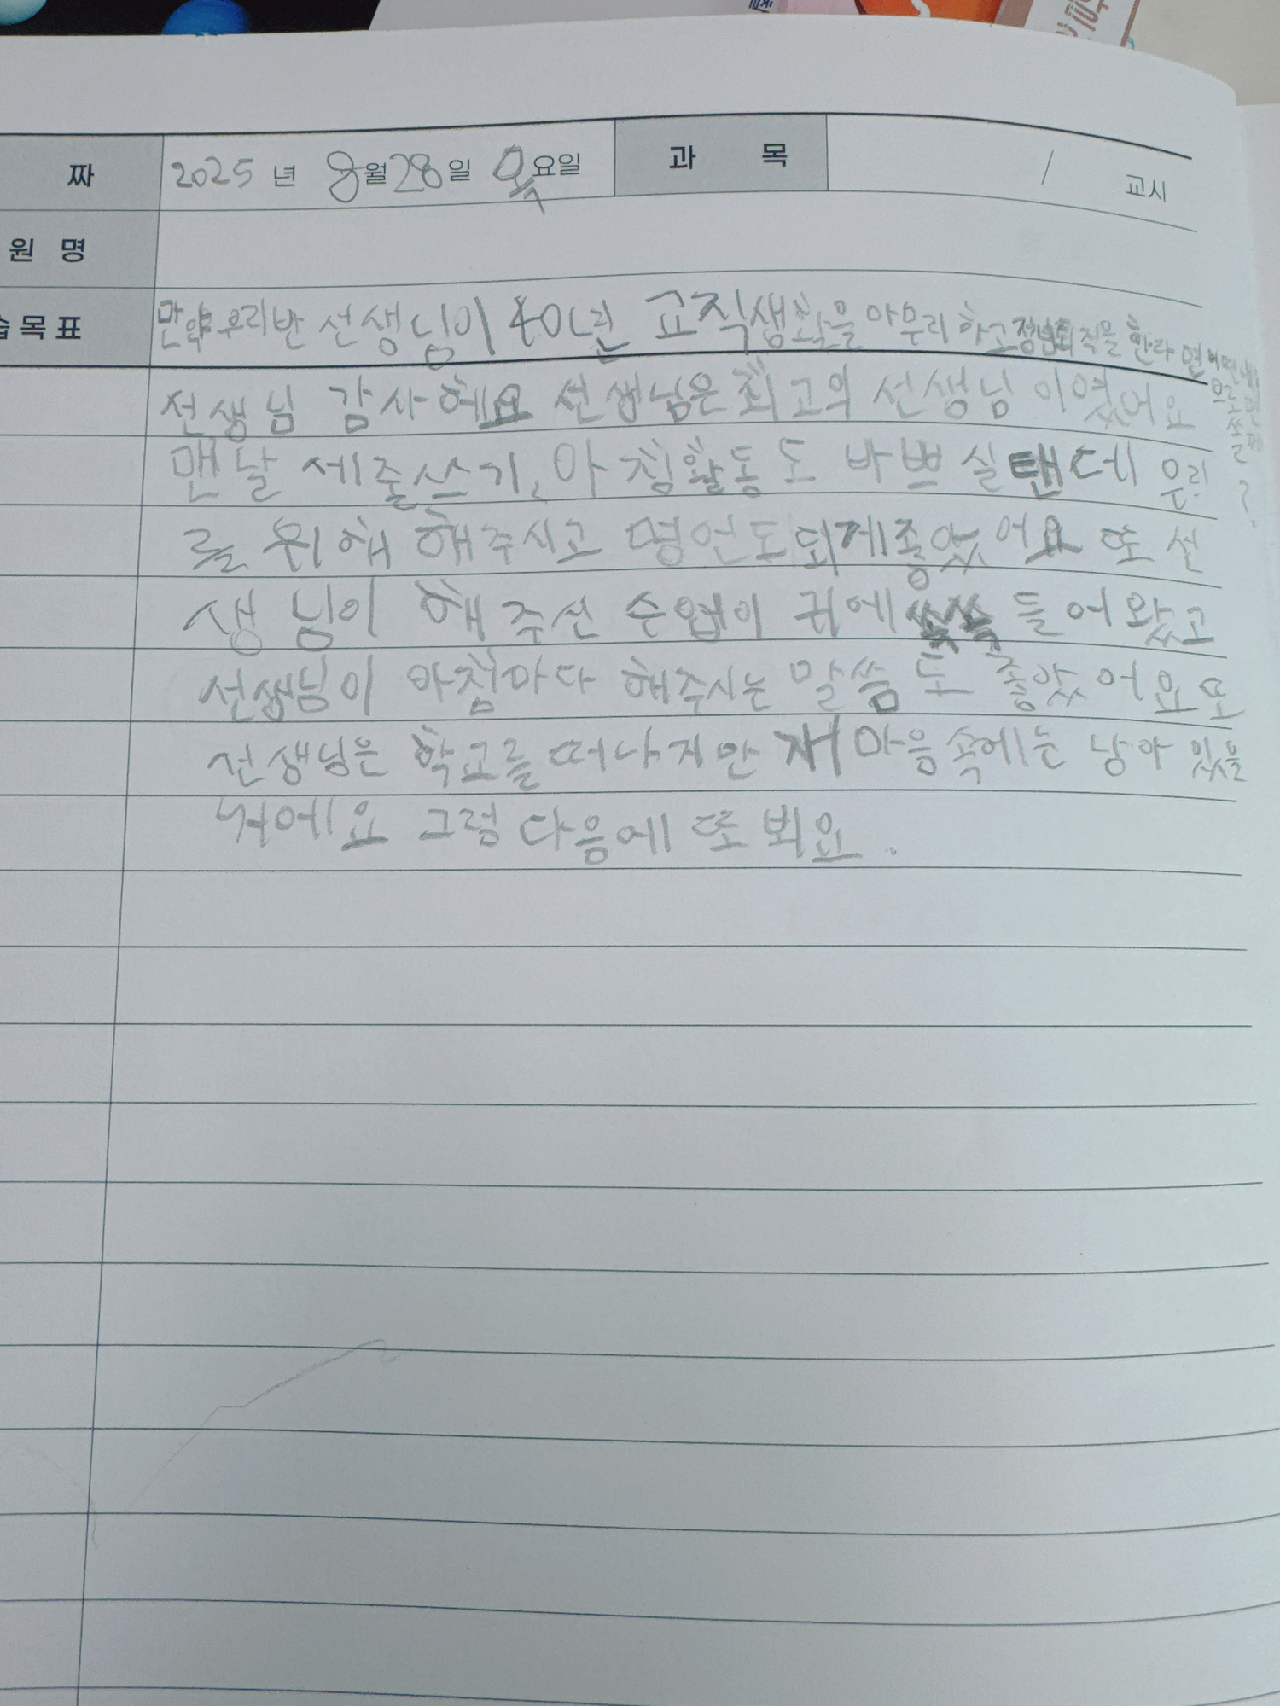 짜 2025 년 8월 28일 목요일 과 목 / 교시
원 명
습목표 만약 우리반 선생님이 40년 교직생활을 마무리 하고 정년퇴직을 한다면 어떤
선생님 감사해요 선생님은 최고의 선생님 이였어요
맨날 세줄쓰기, 아침활동도 바쁘실탠데 우리
를 위해 해주시고 명언도 되게좋았어요 또 선
생님이 해주신 수업이 귀에 쏙쏙 들어왔고
선생님이 아침마다 해주시는 말씀도 좋았어요 또
선생님은 학교를 떠나지만 재 마음속에는 남아 있을
거에요 그럼 다음에 또 뵈요.